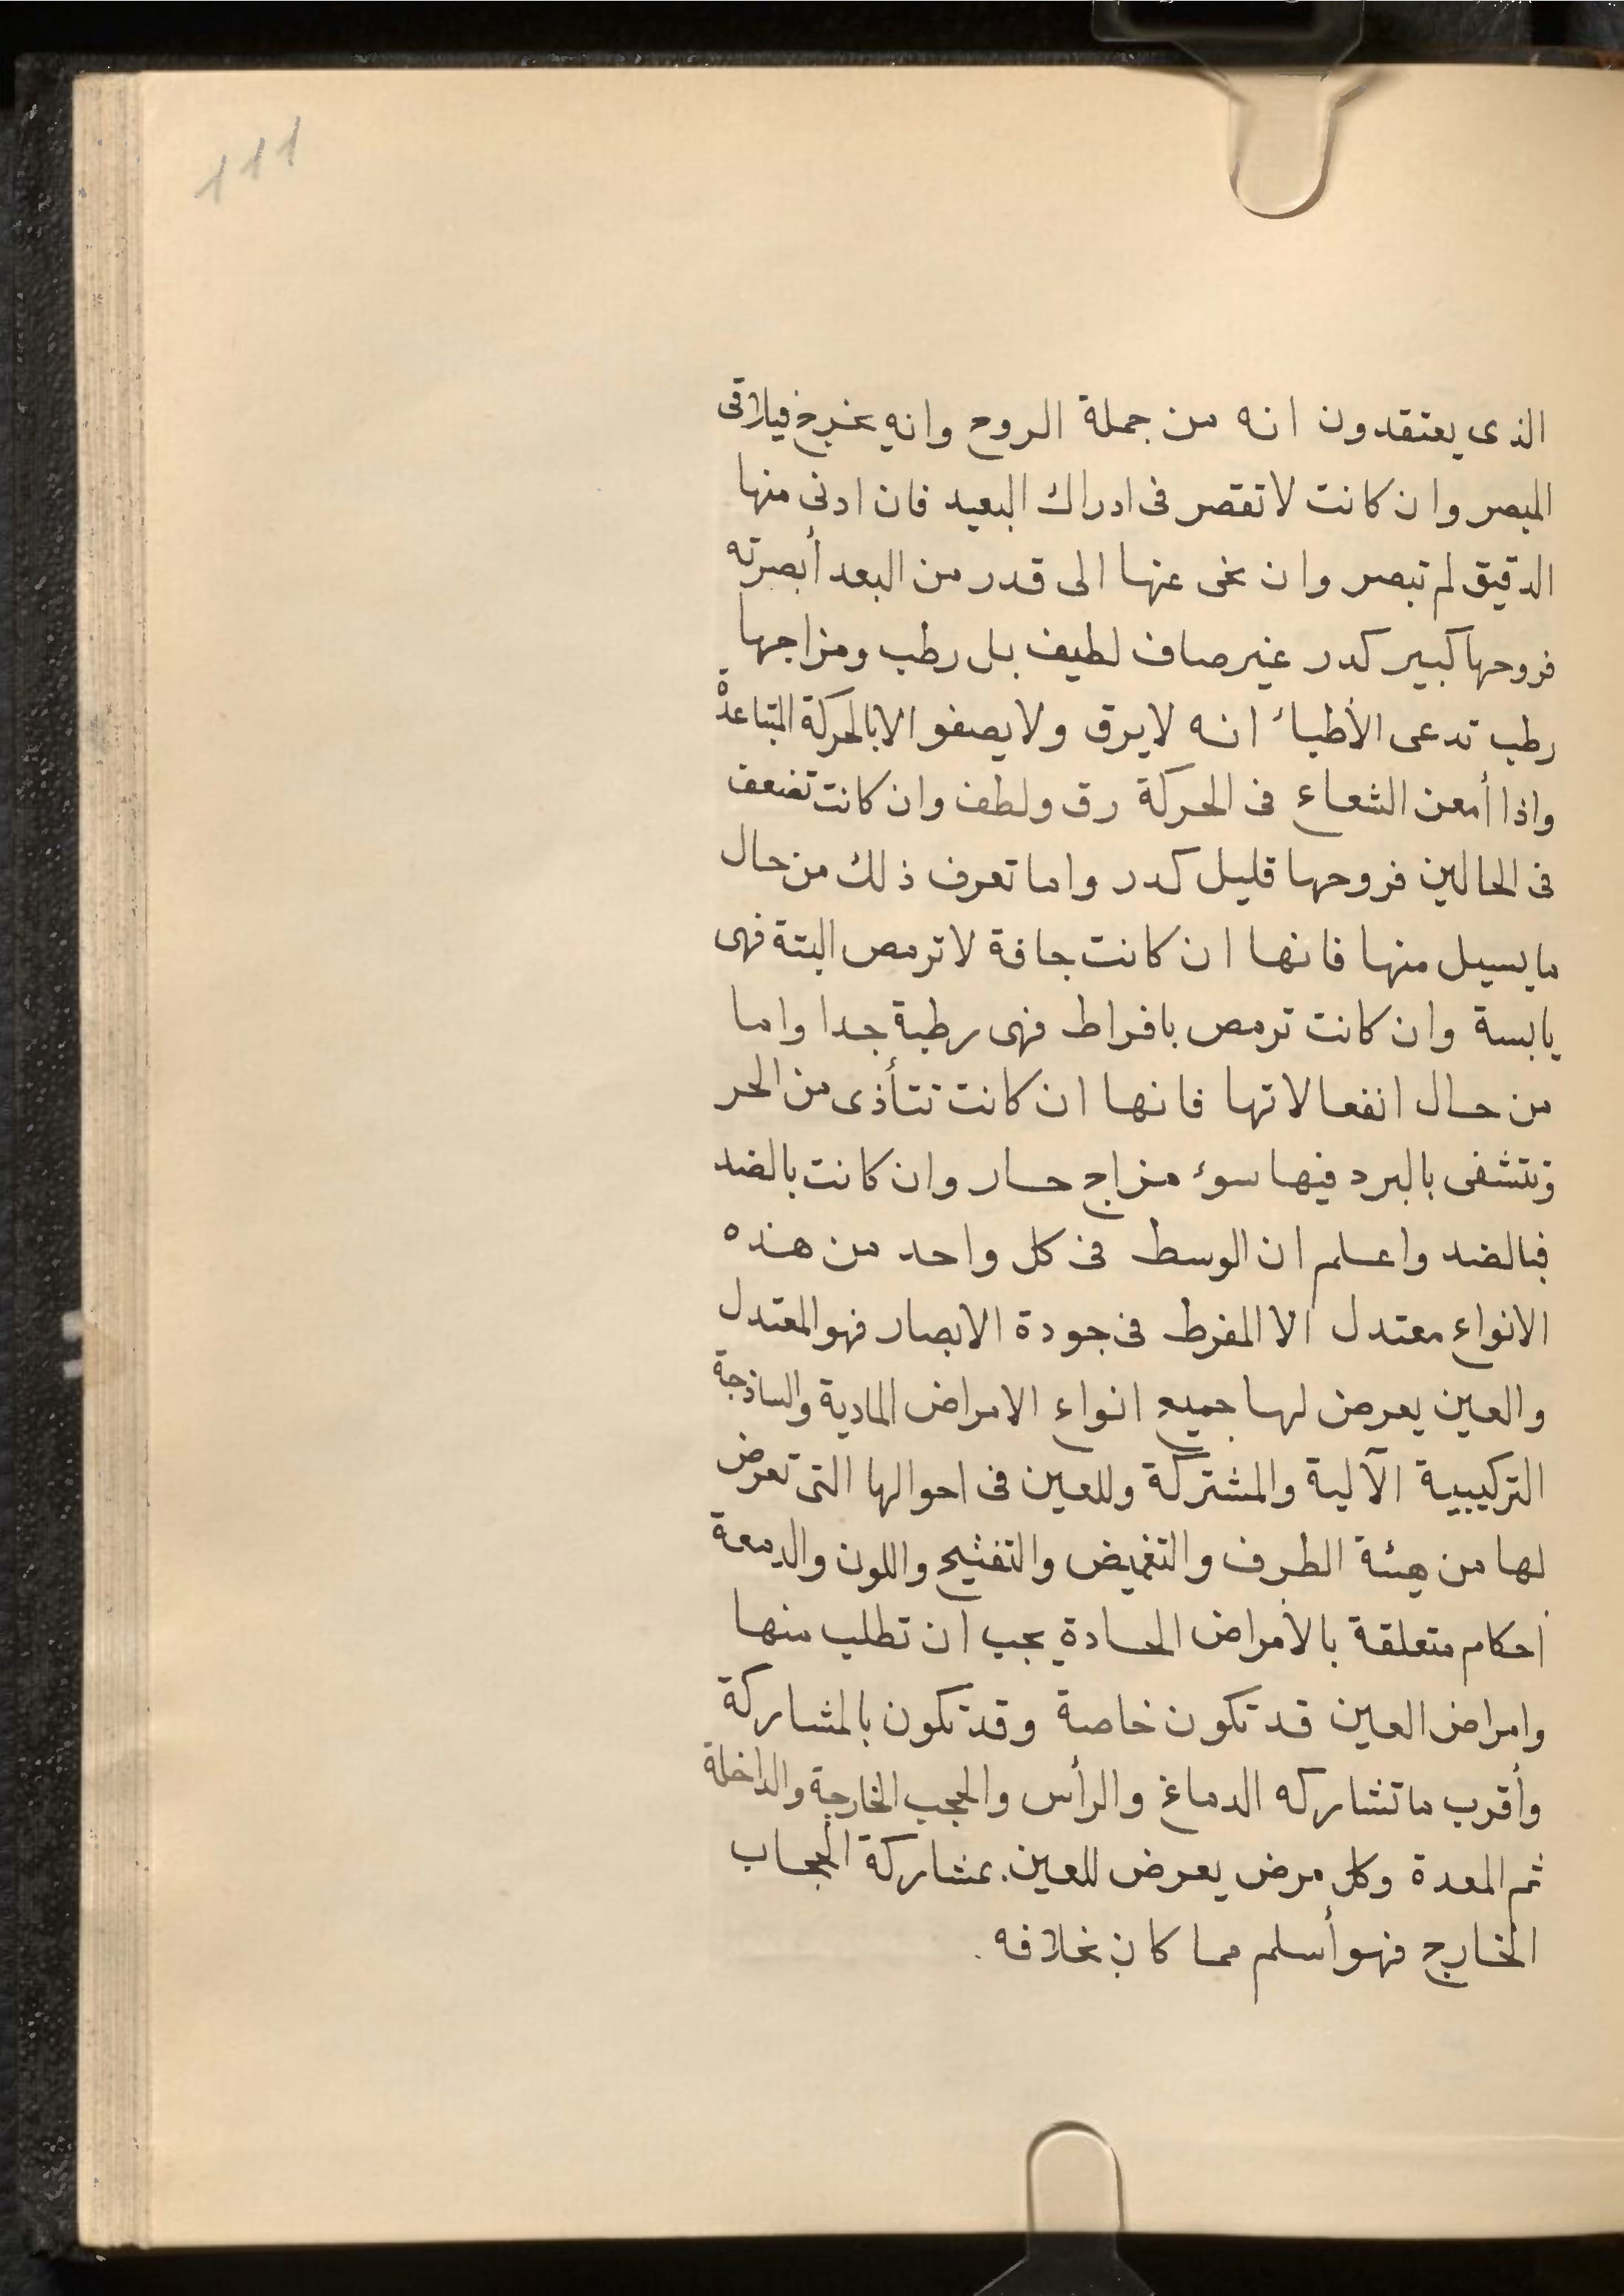 111
الذى يعتقدون انه من جملة الروح وانه يخرج فيلاقى
المبصر وان كانت لا تقصر فى ادراك البعيد فان ادنى منها
الدقيق لم تبصر وان نحى عنها الى قدر من البعد أبصرته
فروحها كبير كدر غير صاف لطيف بل رطب ومزاجها
رطب تدعى الأطباء انه لا يرق ولا يصفو الا بالحركة المتباعدة
واذا أمعن الشعاع فى الحركة رق ولطف وان كانت تضعف
فى الحالين فروحها قليل كدر واما تعرف ذلك من حال
ما يسيل منها فانها ان كانت جافة لا ترمص البتة فهى
يابسة وان كانت ترمص بافراط فهى رطبة جدا واما
من حال انفعالاتها فانها ان كانت تتأذى من الحر
وتتشفى بالبرد فيها سوء مزاج حار وان كانت بالضد
فبالضد واعلم ان الوسط فى كل واحد من هذه
الانواع معتدل الا المفرط فى جودة الابصار فهو المعتدل
والعين يعرض لها جميع انواع الامراض المادية والساذجة
التركيبية الآلية والمشتركة وللعين فى احوالها التى تعرض
لها من هيئة الطرف والتغميض والتفتيح واللون والدمعة
احكام متعلقة بالأمراض الحادة يجب ان تطلب منها
وامراض العين قد تكون خاصة وقد تكون بالمشاركة
وأقرب ما تشاركه الدماغ والرأس والحجب الخارجة والداخلة
ثم المعدة وكل مرض يعرض للعين بمشاركة الحجاب
الخارج فهو أسلم مما كان بخلافه.